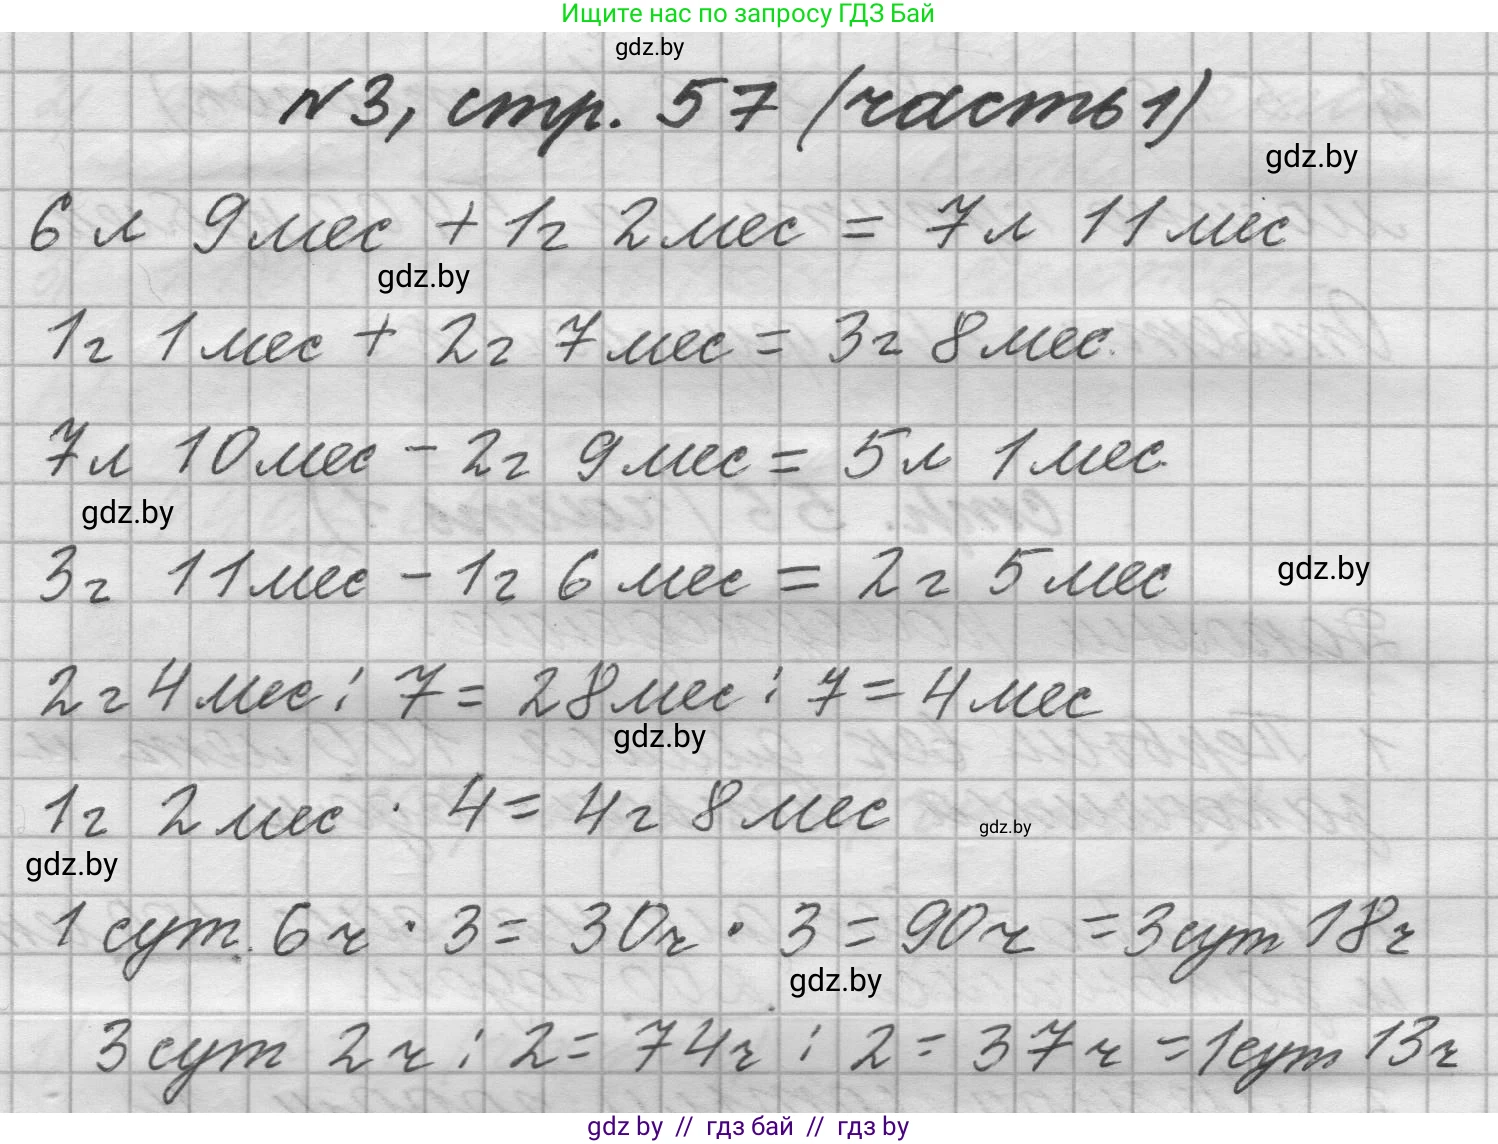 Ищите нас по запросу ГДЗ Бай
gdz.by
№3, стр. 57 (часть 1)
gdz.by
6 л 9 мес + 1 г 2 мес = 7 л 11 мес
gdz.by
1 г 1 мес + 2 г 7 мес = 3 г 8 мес.
7 л 10 мес - 2 г 9 мес = 5 л 1 мес.
gdz.by
3 г 11 мес - 1 г 6 мес = 2 г 5 мес
gdz.by
2 г 4 мес : 7 = 28 мес : 7 = 4 мес
gdz.by
1 г 2 мес · 4 = 4 г 8 мес
gdz.by
gdz.by
1 сут. 6 ч · 3 = 30 ч · 3 = 90 ч = 3 сут 18 ч
gdz.by
3 сут 2 ч : 2 = 74 ч : 2 = 37 ч = 1 сут 13 ч
gdz by // гдз бай // гдз by